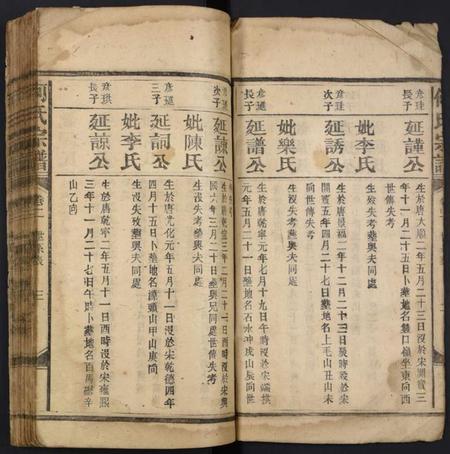 彥珪長子
延謹公
生於唐大順二年五月二十三日沒於宋開寶三
年十一月二十五日卜葬地名盤口嶺坐東向西
世傳失考
妣李氏
生歿失考葬與夫同處
彥珪次子
延誘公
生於唐景福二年十二月二十三日辰時歿於宋
開寶五年四月二十七日葬地名上毛山丑山未
向世傳失考
妣樂氏
生沒失考葬與夫同處
彥珽長子
延譜公
生於唐乾寧元年七月十九日午時沒於宋端拱
元年五月二十一日葬地名石水沖戌山辰向世
次子
延諫公
生於唐乾寧三年二月二十一日酉時沒於宋興
國六年三月二十日葬與兄同處世傳失考
妣陳氏
生沒失考葬與夫同處
彥珽三子
延詞公
生於唐光化元年五月十一日沒於宋乾德四年
四月十五日卜葬地名譚頭山甲山庚向
妣李氏
生沒失考葬與夫同處
彥珙長子
延諒公
生於唐乾寧二年五月十一日酉時沒於宋雍熙
三年十一月二十七日午時卜葬地名百馬橋辛
山乙向
何氏宗譜
卷二
世系
三
何氏宗譜